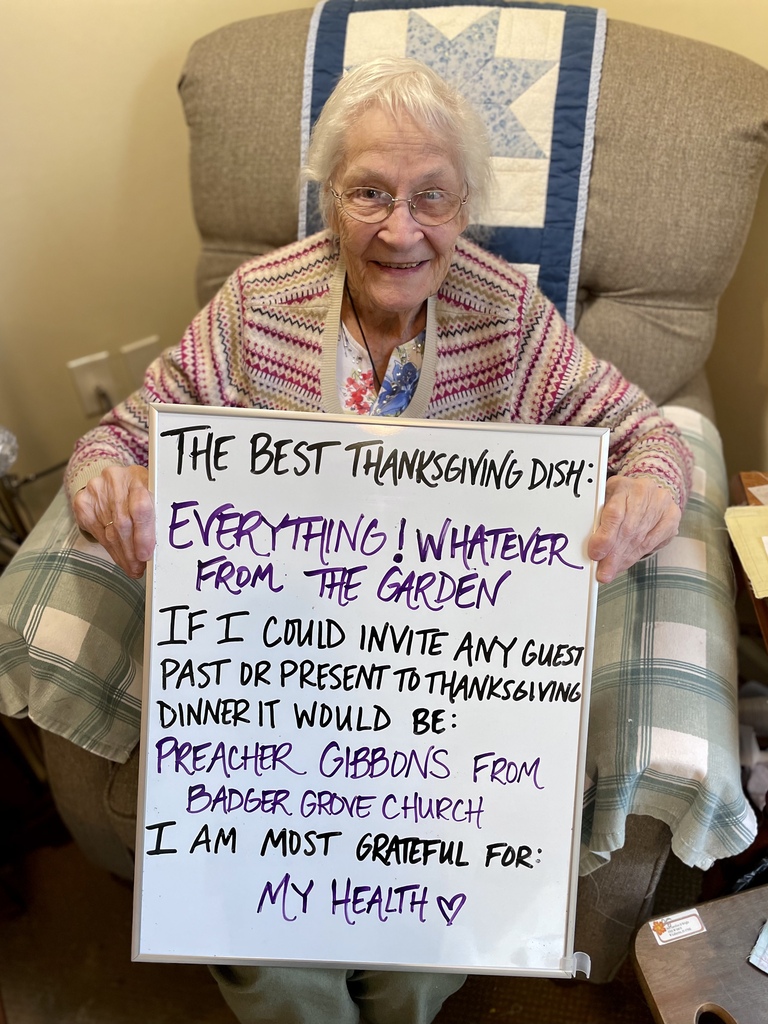 THE BEST THANKSGIVING DISH:
EVERYTHING! WHATEVER
FROM THE GARDEN
IF I COULD INVITE ANY GUEST
PAST OR PRESENT TO THANKSGIVING
DINNER IT WOULD BE:
PREACHER GIBBONS FROM
BADGER GROVE CHURCH
I AM MOST GRATEFUL FOR:
MY HEALTH ♡